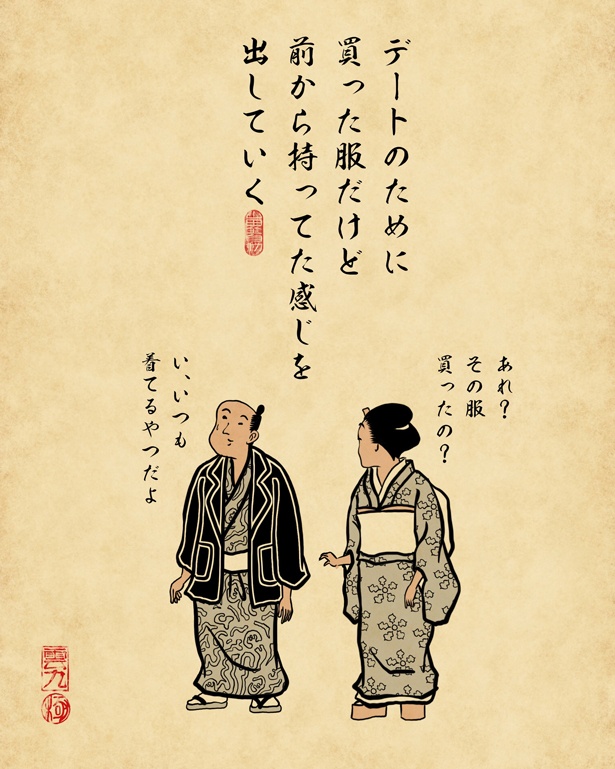 デートのために
買った服だけど
前から持ってた感じを
出していく
あれ？
その服
買ったの？
い、いつも
着てるやつだよ